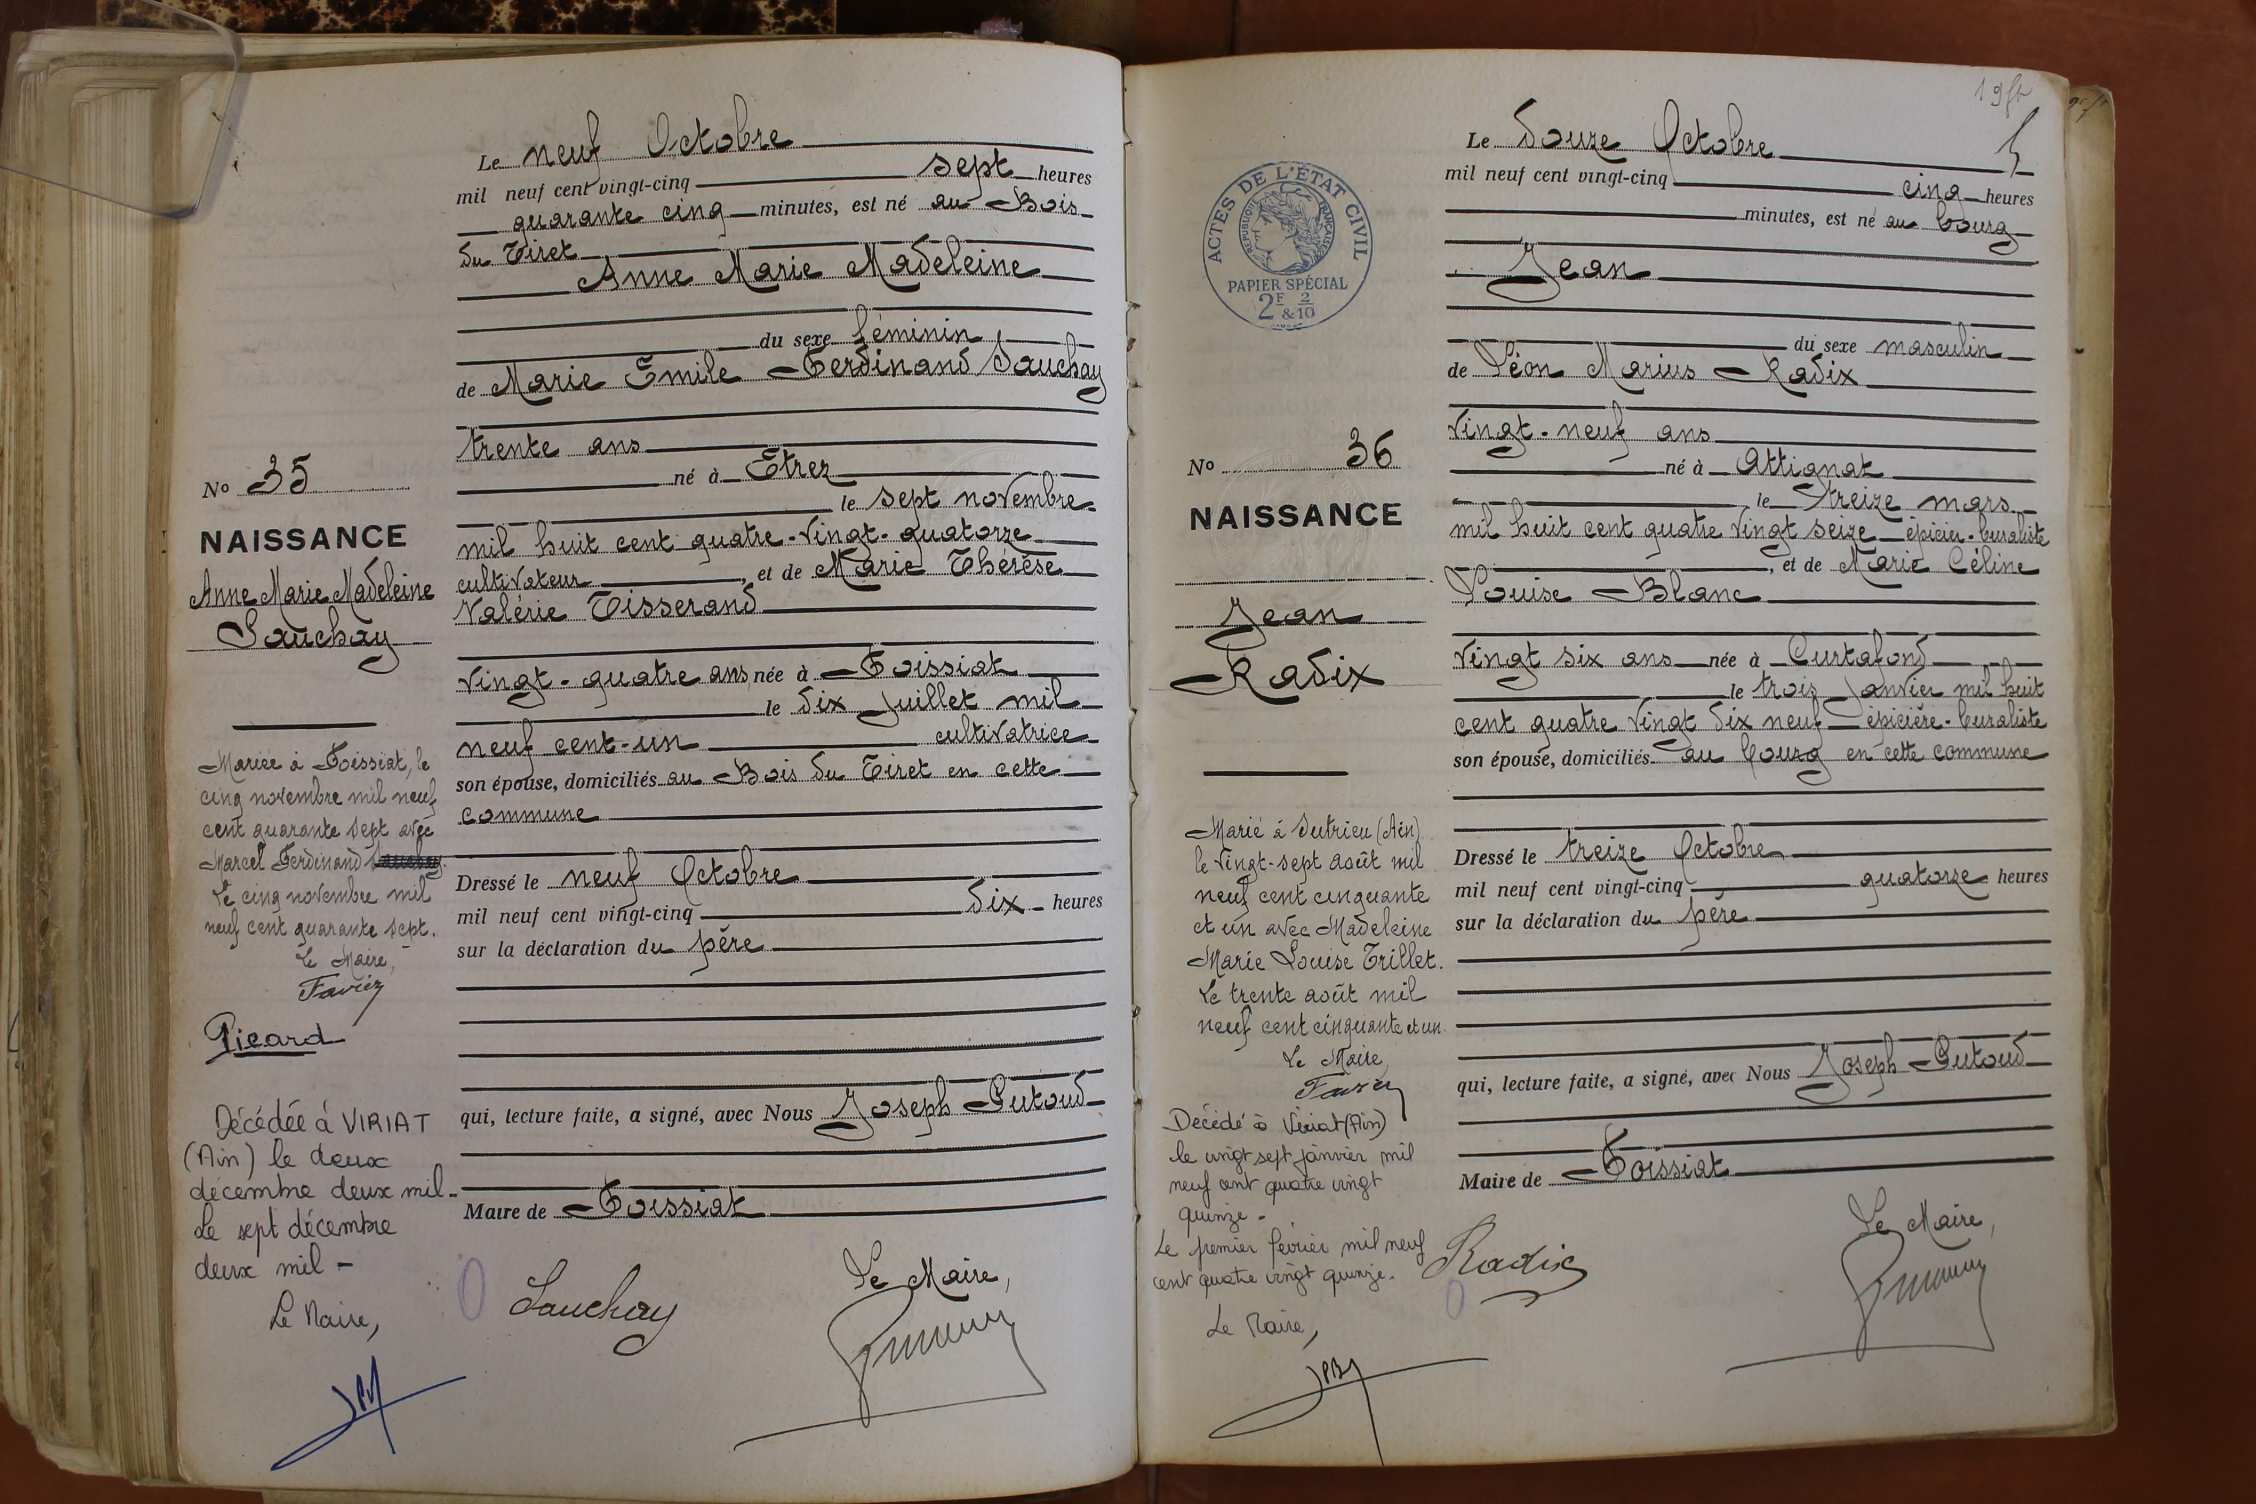 Le neuf Octobre
mil neuf cent vingt-cinq sept heures
quarante cinq minutes, est né au Bois
du Tiret
Anne Marie Madeleine
du sexe féminin
de Marie Emile Ferdinand Sauchay
trente ans
né à Etrez
le sept novembre
mil huit cent quatre-vingt-quatorze
cultivateur, et de Marie Thérèse
Valérie Tisserand
vingt-quatre ans, née à Foissiat
le dix Juillet mil
neuf cent-un cultivatrice
son épouse, domiciliés au Bois du Tiret en cette
commune
Dressé le neuf Octobre
mil neuf cent vingt-cinq dix heures
sur la déclaration du père
qui, lecture faite, a signé, avec Nous Joseph Putoud
Maire de Foissiat
Sauchay
Le Maire,
No 35
NAISSANCE
Anne Marie Madeleine
Sauchay
Mariée à Foissiat, le
cinq novembre mil neuf
cent quarante sept avec
Marcel Ferdinand
Le cinq novembre mil
neuf cent quarante sept.
Le Maire,
Favier
Picard
Décédée à VIRIAT
(Ain) le deux
décembre deux mil-
Le sept décembre
deux mil -
Le Maire,
Le douze Octobre
mil neuf cent vingt-cinq cinq heures
minutes, est né au bourg
Jean
du sexe masculin
de Léon Marius Radix
vingt-neuf ans
né à Attignat
le treize mars
mil huit cent quatre vingt seize épicier-buraliste
, et de Marie Céline
Louise Blanc
vingt six ans née à Curtafond
le trois janvier mil huit
cent quatre vingt dix neuf épicière-buraliste
son épouse, domiciliés au bourg en cette commune
Dressé le treize Octobre
mil neuf cent vingt-cinq quatorze heures
sur la déclaration du père
qui, lecture faite, a signé, avec Nous Joseph Putoud
Maire de Foissiat
Radix
Le Maire,
ACTES DE L'ÉTAT CIVIL
RÉPUBLIQUE FRANÇAISE
PAPIER SPÉCIAL
2F & 2/10
No 36
NAISSANCE
Jean
Radix
Marié à Sutrieu (Ain)
le vingt-sept août mil
neuf cent cinquante
et un avec Madeleine
Marie Louise Trillet.
Le trente août mil
neuf cent cinquante et un.
Le Maire,
Favier
Décédé à Viriat (Ain)
le vingt sept janvier mil
neuf cent quatre vingt
quinze -
Le premier février mil neuf
cent quatre vingt quinze.
Le Maire,